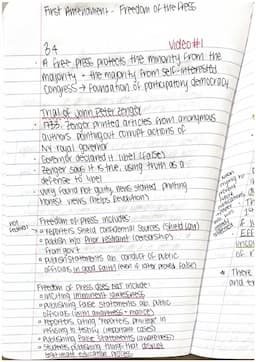 First Amendment - Freedom of the Press
34
Video #1
• A free press protects the minority from the
majority + the majority from self-interested
Congress → foundation of participatory democracy
Trial of John Peter Zenger
• 1733: Zenger printed articles from anonymous
authors pointing out corrupt actions of
NY royal governor
• Governor declared it libel (false)
• Zenger says it is true, using truth as a
defense to libel
• Jury found not guilty, news started printing
honest views (helps Revolution)
Freedom of Press includes:
• reporters shield confidential sources (shield law)
• publish w/o prior restraint (censorship)
from gov't
• publish statements on conduct of public
officials in good faith (even if later proved false)
Freedom of Press does not include:
• inciting imminent lawlessness
• publishing false statements on public
officials (
• reporters citing "reporters privilege" in
refusing to testify (important cases)
• publishing false statements
• students publishing things that
legitimate education process
• There